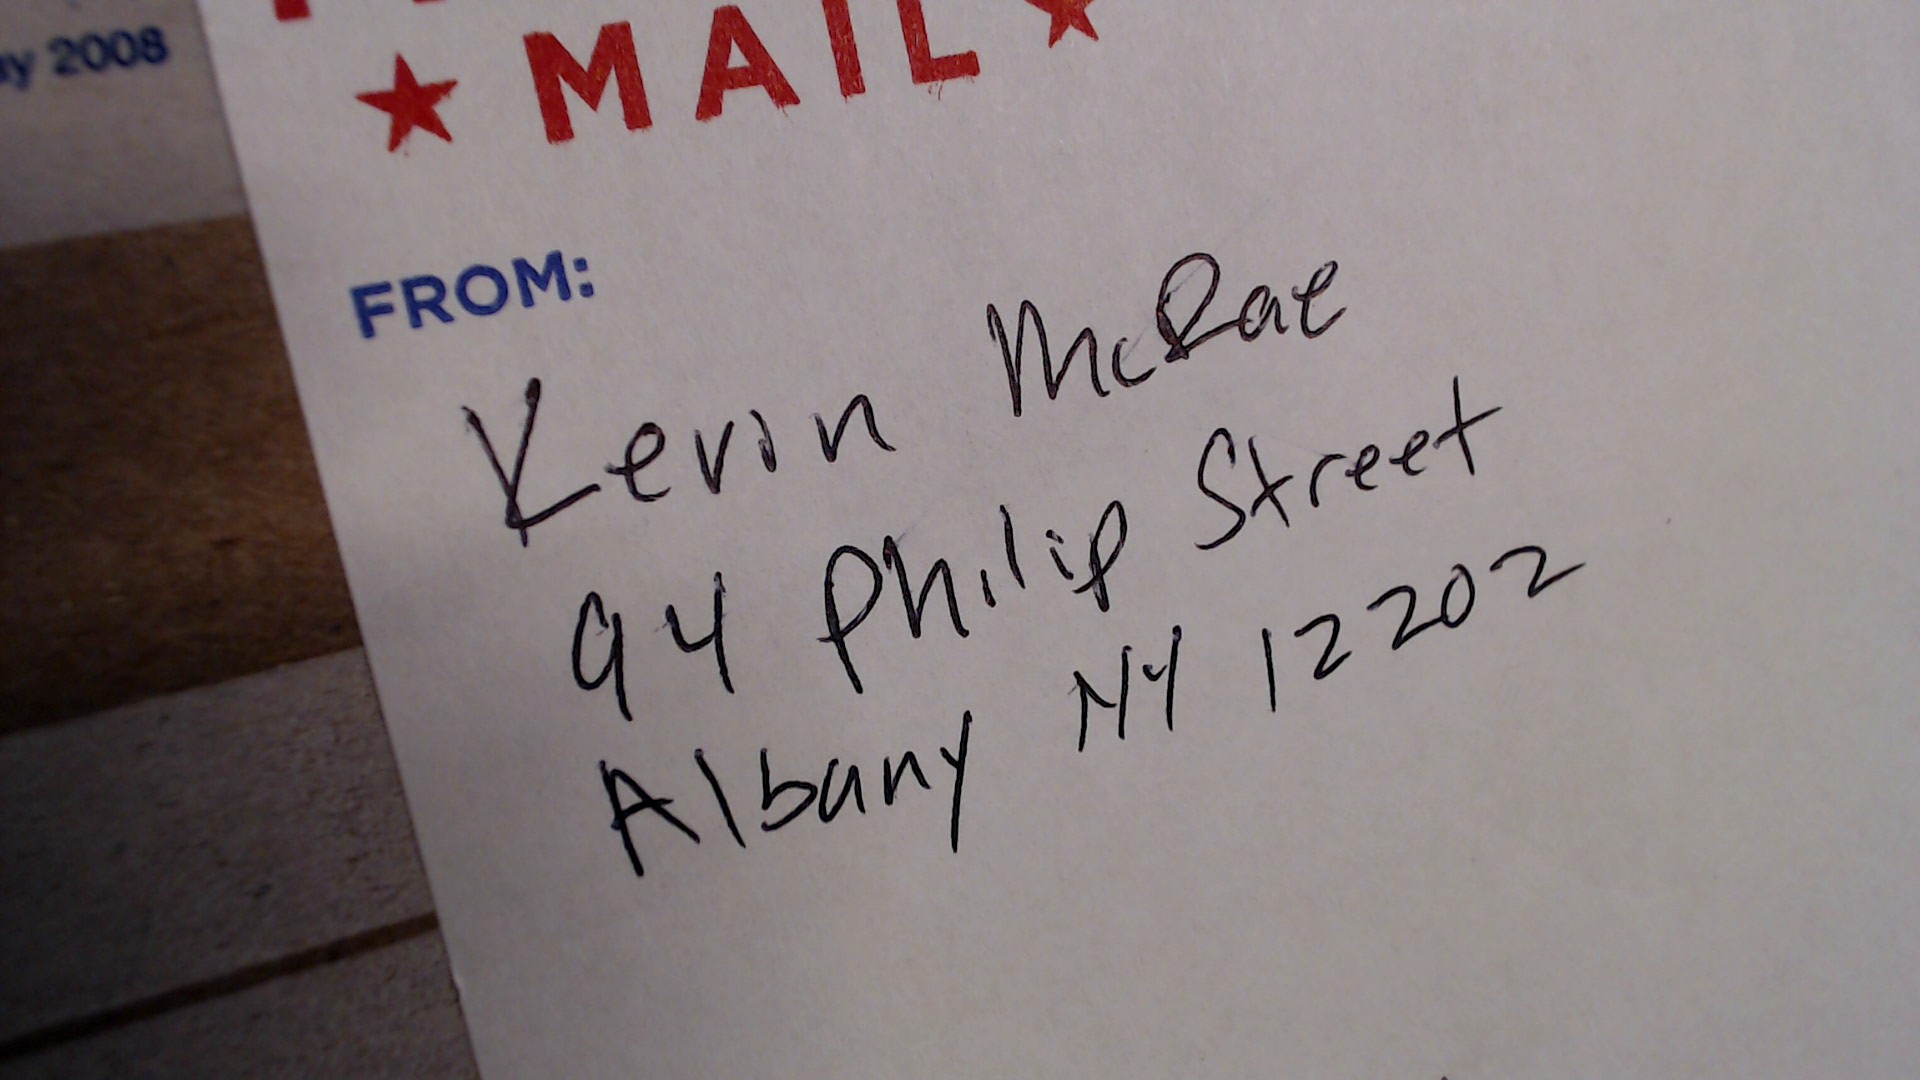 ay 2008
★ MAIL ★
FROM:
Kevin McRae
94 Philip Street
Albany NY 12202